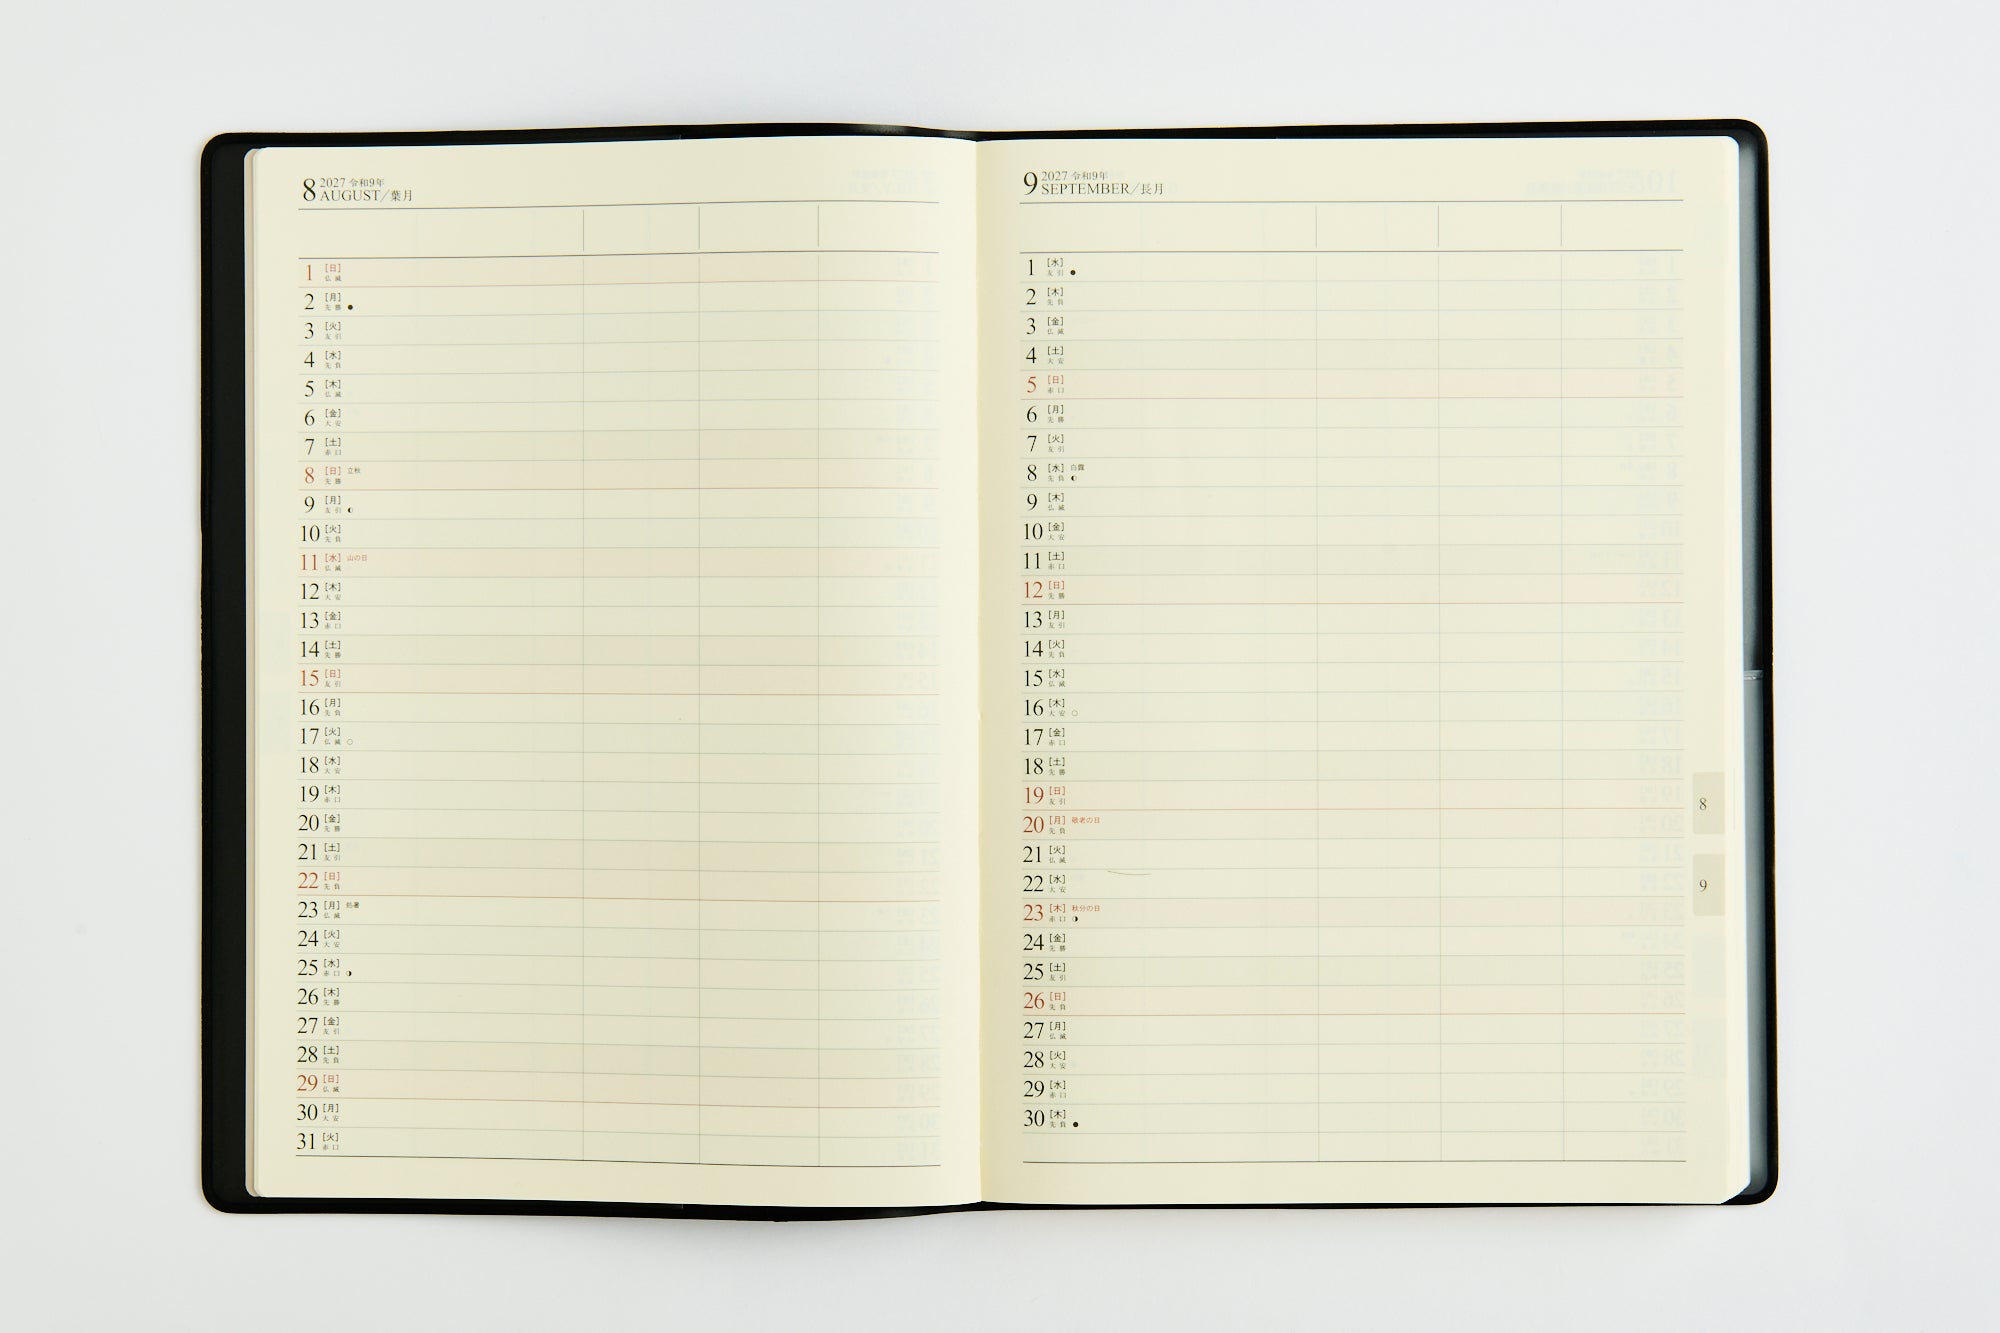 8 2027 令和9年
AUGUST/葉月
1 [日]
仏滅
2 [月]
先勝 ●
3 [火]
友引
4 [水]
先負
5 [木]
仏滅
6 [金]
大安
7 [土]
赤口
8 [日] 立秋
先勝
9 [月]
友引 ◐
10 [火]
先負
11 [水] 山の日
仏滅
12 [木]
大安
13 [金]
赤口
14 [土]
先勝
15 [日]
友引
16 [月]
先負
17 [火]
仏滅 ○
18 [水]
大安
19 [木]
赤口
20 [金]
先勝
21 [土]
友引
22 [日]
先負
23 [月] 処暑
仏滅
24 [火]
大安
25 [水]
赤口 ◑
26 [木]
先勝
27 [金]
友引
28 [土]
先負
29 [日]
仏滅
30 [月]
大安
31 [火]
赤口
9 2027 令和9年
SEPTEMBER/長月
1 [水]
友引 ●
2 [木]
先負
3 [金]
仏滅
4 [土]
大安
5 [日]
赤口
6 [月]
先勝
7 [火]
友引
8 [水] 白露
先負 ◐
9 [木]
仏滅
10 [金]
大安
11 [土]
赤口
12 [日]
先勝
13 [月]
友引
14 [火]
先負
15 [水]
仏滅
16 [木]
大安 ○
17 [金]
赤口
18 [土]
先勝
19 [日]
友引
20 [月] 敬老の日
先負
21 [火]
仏滅
22 [水]
大安
23 [木] 秋分の日
赤口 ◑
24 [金]
先勝
25 [土]
友引
26 [日]
先負
27 [月]
仏滅
28 [火]
大安
29 [水]
赤口
30 [木]
先負 ●
8
9